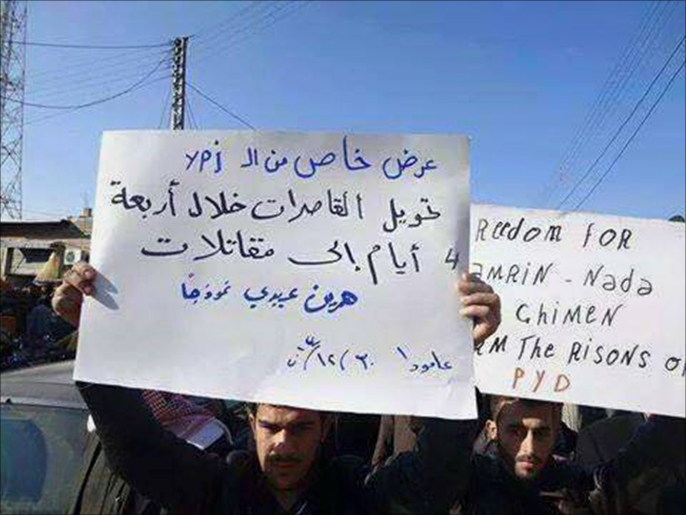 عرض خاص من الـ ypj
تحويل القاصرات خلال أربعة
أيام إلى مقاتلات
عيدي نموذجًا
عامودا
Reedom FOR
AMRIN - Nada
GHIMEN
The RISONS O
PYD